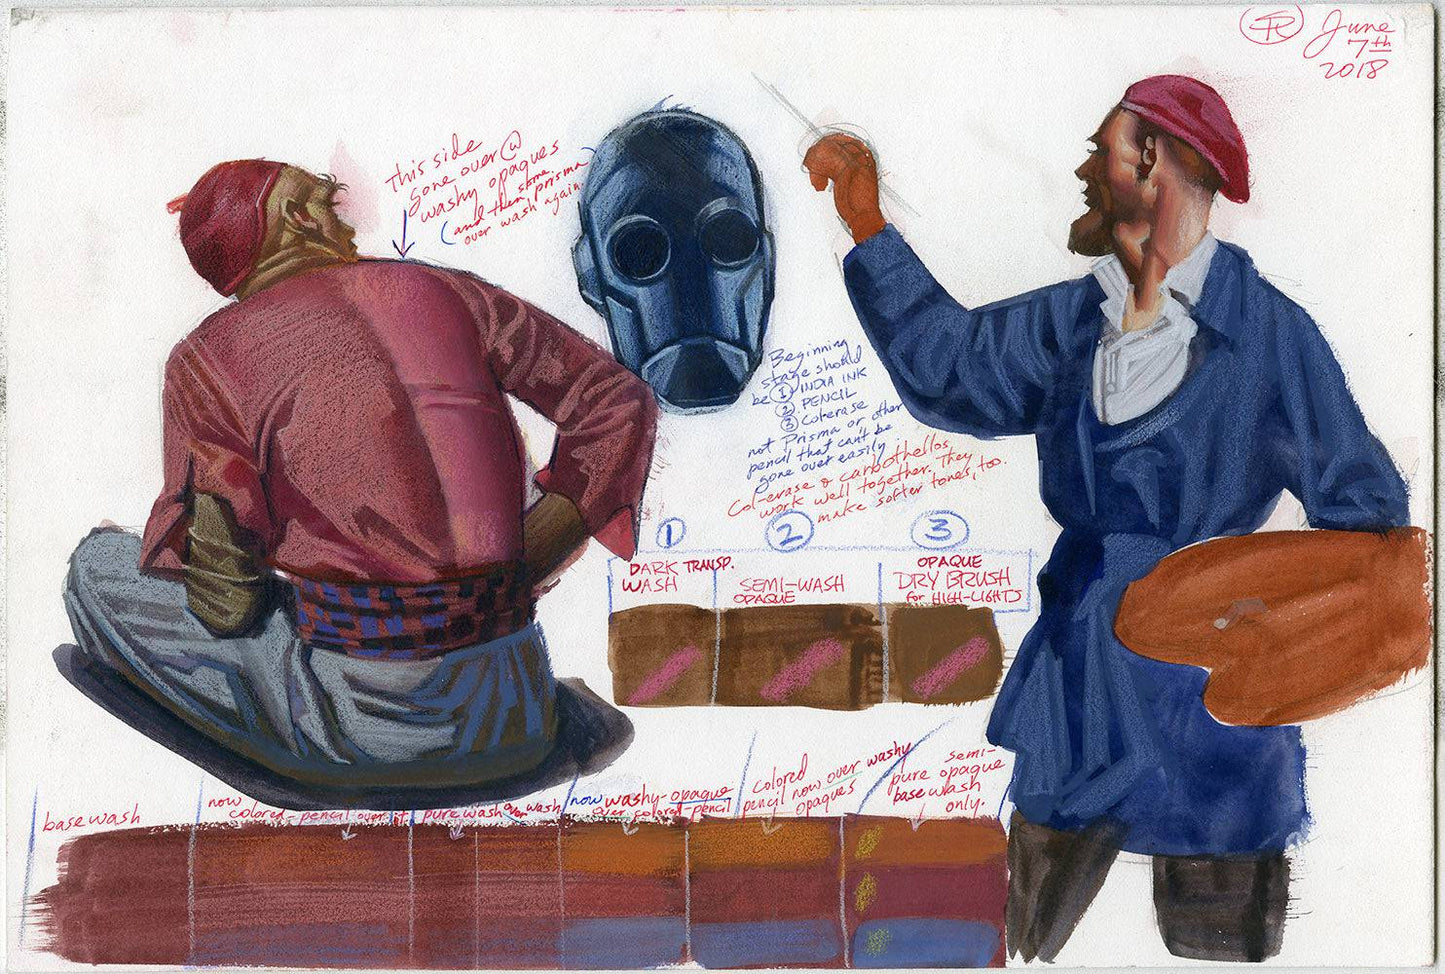 June
7th
2018
This side
gone over @
washy opaques
and then some prisma
over wash again
Beginning
stage should
be ① INDIA INK
② PENCIL
③ Colerase
not Prisma or other
pencil that can't be
gone over easily
Col-erase & carbothellos
work well together. They
make softer tones, too.
① ② ③
DARK TRANSP.
WASH
SEMI-WASH
OPAQUE
OPAQUE
DRY BRUSH
for HIGH-LIGHTS
base wash
now
colored-pencil over it
pure wash over wash
now washy-opaque
over colored-pencil
colored
pencil now over washy
opaques
semi-
pure opaque
base wash
only.